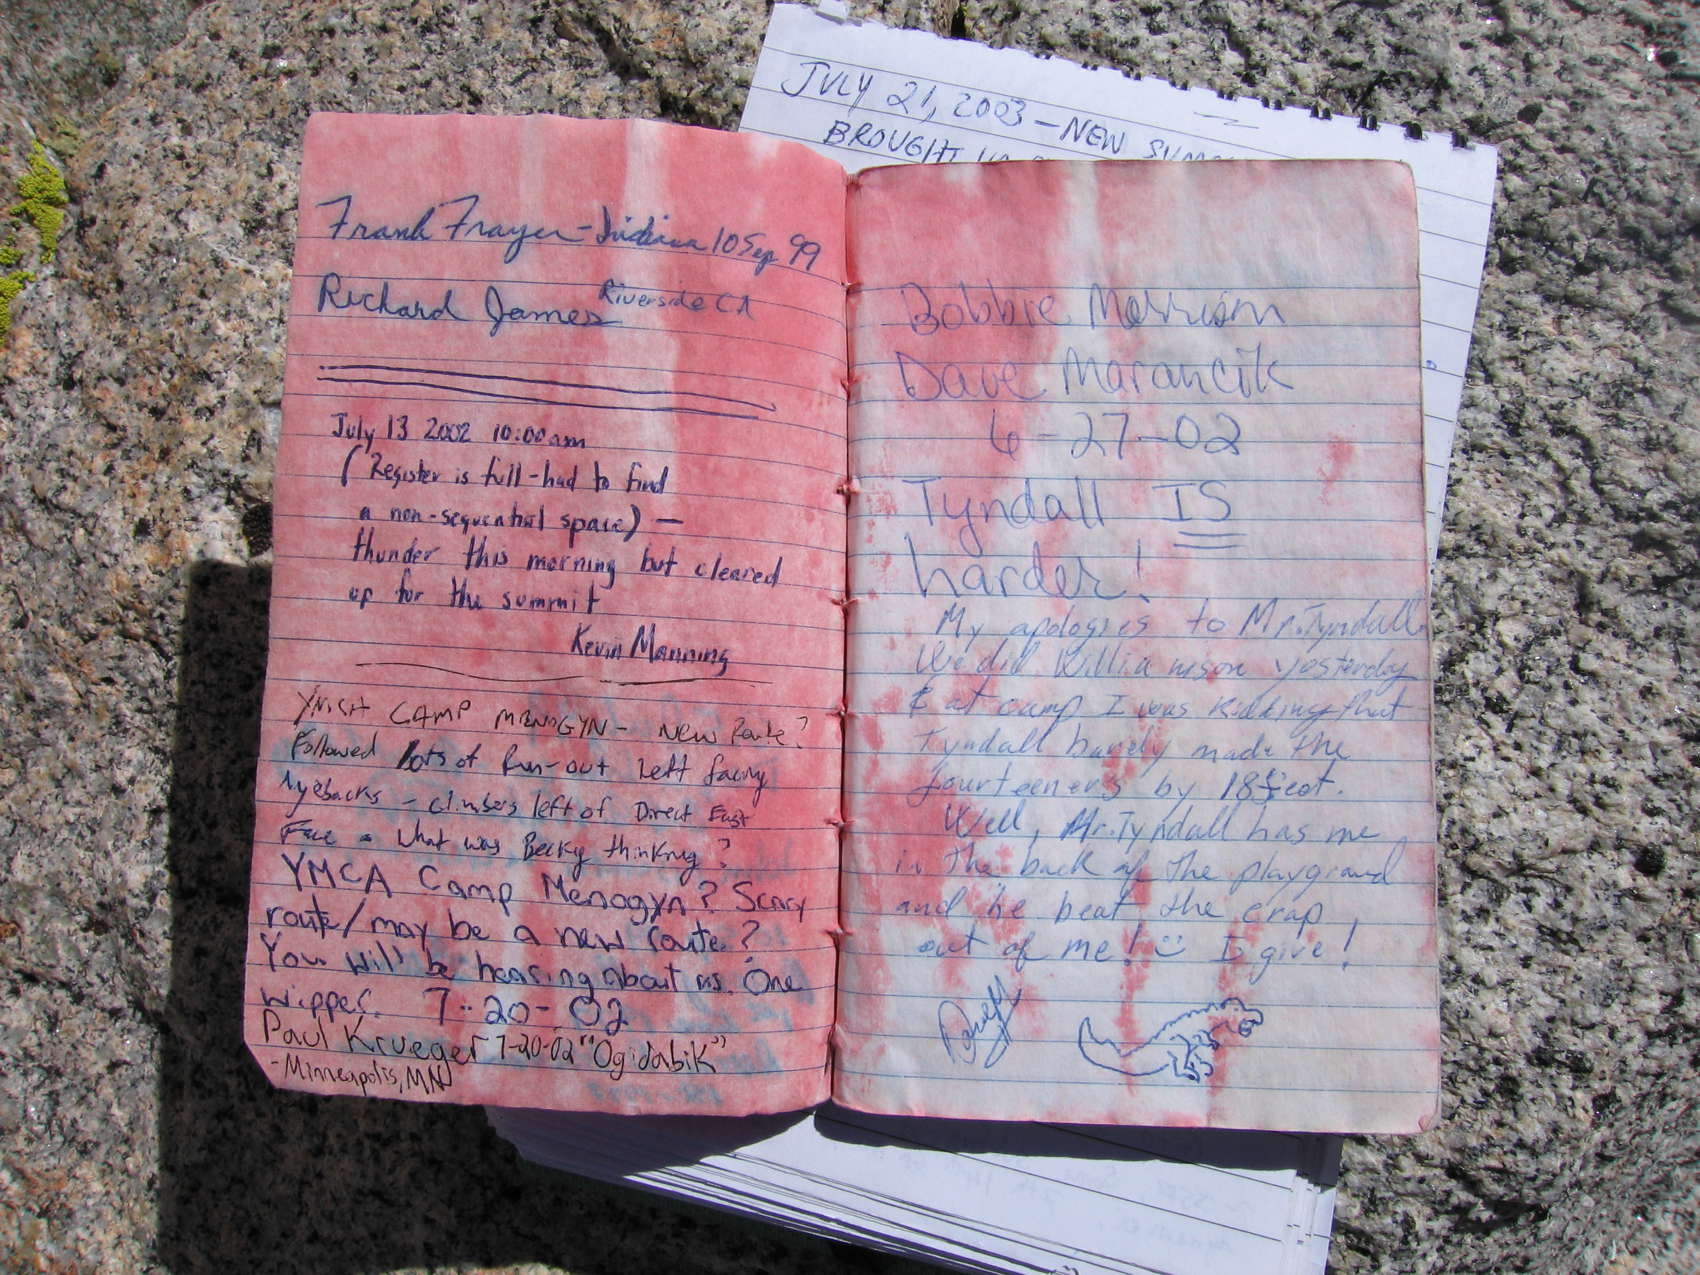 JULY 21, 2003 - NEW
BROUGHT
Frank Frayer - Indiana 10 Sep 99
Richard James Riverside CA
July 13 2002 10:00am
(Register is full - had to find
a non-sequential space) -
thunder this morning but cleared
up for the summit
Kevin Manning
YMCA CAMP MENOGYN - NEW Route?
Followed lots of Run-out left facing
- climbers left of Direct East
Face - what was Becky thinking?
YMCA Camp Menogyn? Scary
route/may be a new route?
You will be hearing about us. One
wipper. 7-20-02
Paul Krueger 7-20-02 "Ogidabik"
- Minneapolis, MN
Bobbie Morrison
Dave Marancik
6-27-02
Tyndall IS
harder!
My apologies to Mr. Tyndall.
We did Williamson yesterday
& at camp I was kidding that
Tyndall barely made the
fourteeners by 18 feet.
Well, Mr. Tyndall has me
in the back of the playground
and he beat the crap
out of me! I give!